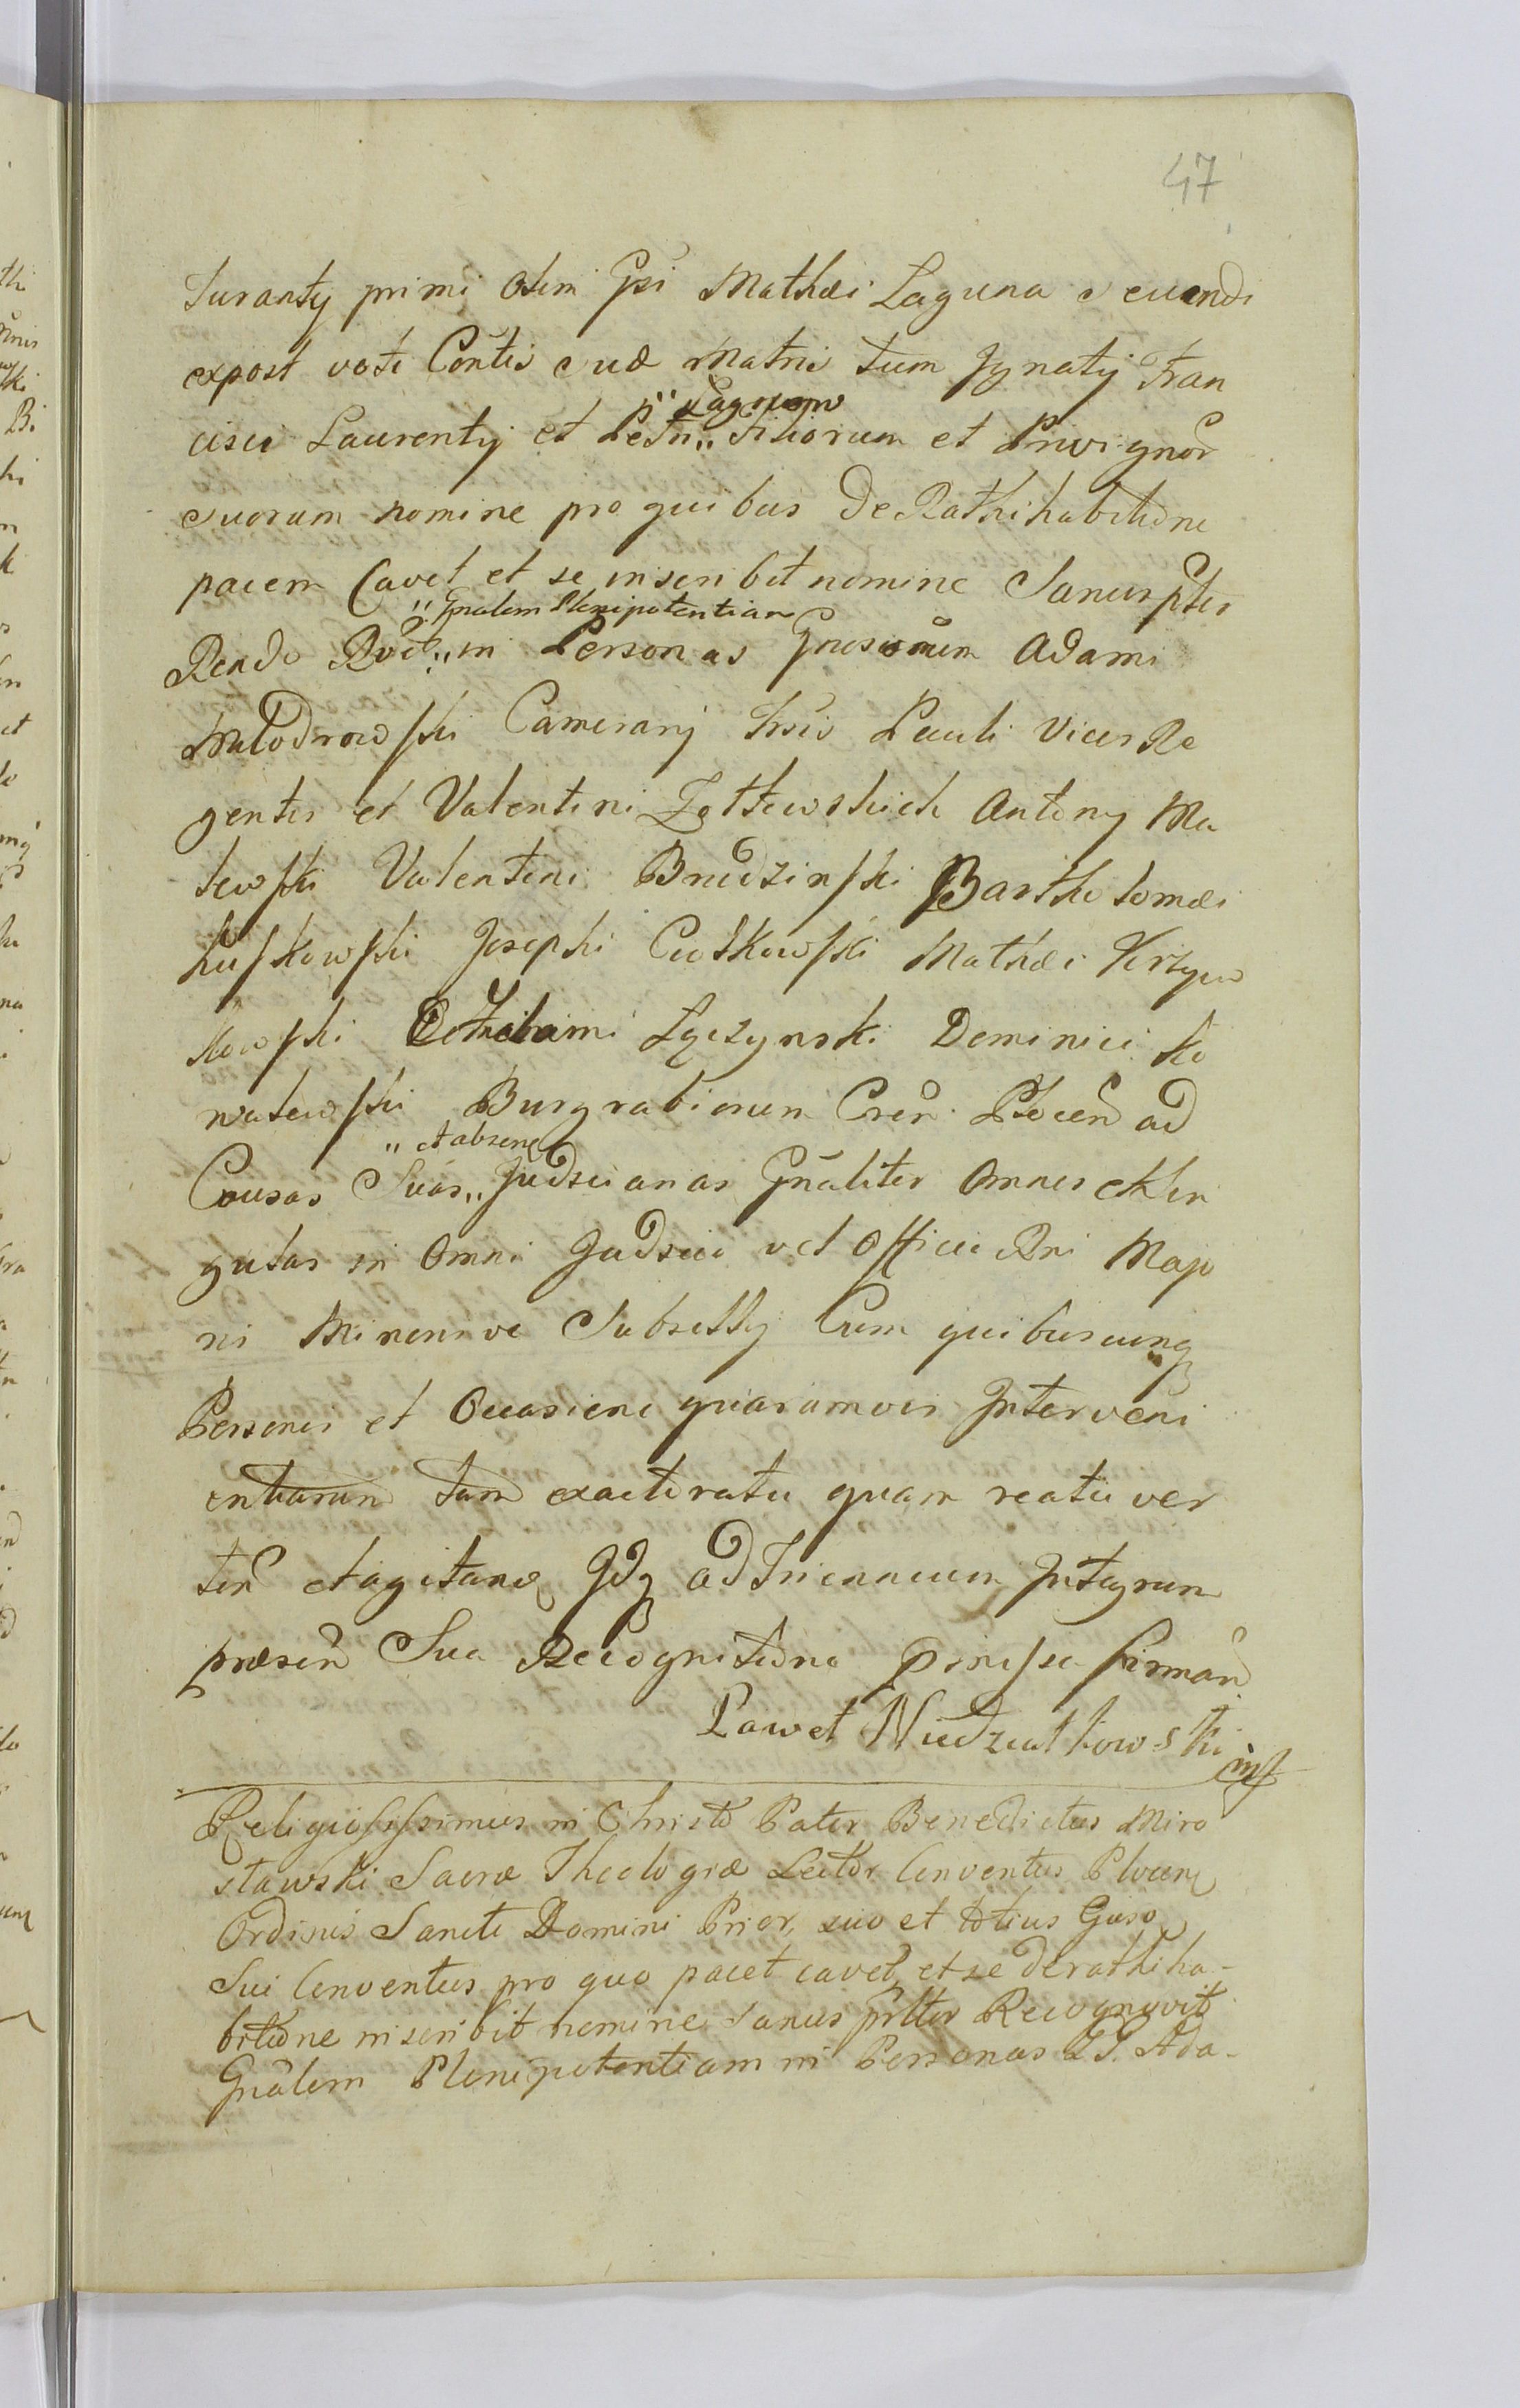 47
Juranty primi olim Gsi Mathæi Laguna secundi
expost voti Contis suæ Matris tum Ignatij Fran
cisci Laurentij et Petri „ Filiorum et Privignor
„ Lagunow
suorum nomine pro quibus de Rathihabitione
pacem cavet et se inscribit nomine Sanus ptes
„ Gnalem Plenipotentiam
Rendo Rvit „ in Personas Gnosorum Adami
Camerarij Pauli Vices Re
gentis et Valentini Żółtowskich Antonij Ma
lewski Valentini Brudzinski Bartholomæi
Łuskowski Josephi Ciotkowski Mathæi Krzyw
kowski Łączynski Dominici Ko
walewski Burgrabiorum Cren Plocen ad
„ et absenq
Causas Suas „ Judiciarias Gnaliter Omnes et Sin
gulas in Omni Judicio vel Officio Rni Majo
ris Minorisve Subsellij Cum quibuscunq
Personis et Occasione quarumvis Interveni
entiarum tam exactoratu quam reatu ver
ten et agitanq Idq ad Triennium Integrum
præsen Sua Recognitione firman
Paweł Niedziałkowski mp
Religiosissimus in Christo Pater Benedictus Miro
sławski Sacræ Theologiæ Lector Conventus Plocenq
Ordinis Sancti Domini Prior, suo et totius Gnso
Sui Conventus pro quo pacet cavet, et se derathiha-
bitione inscribit nomine Sanus prtter Recognovit
Gnalem Plenipotentiam in Personas Ada-